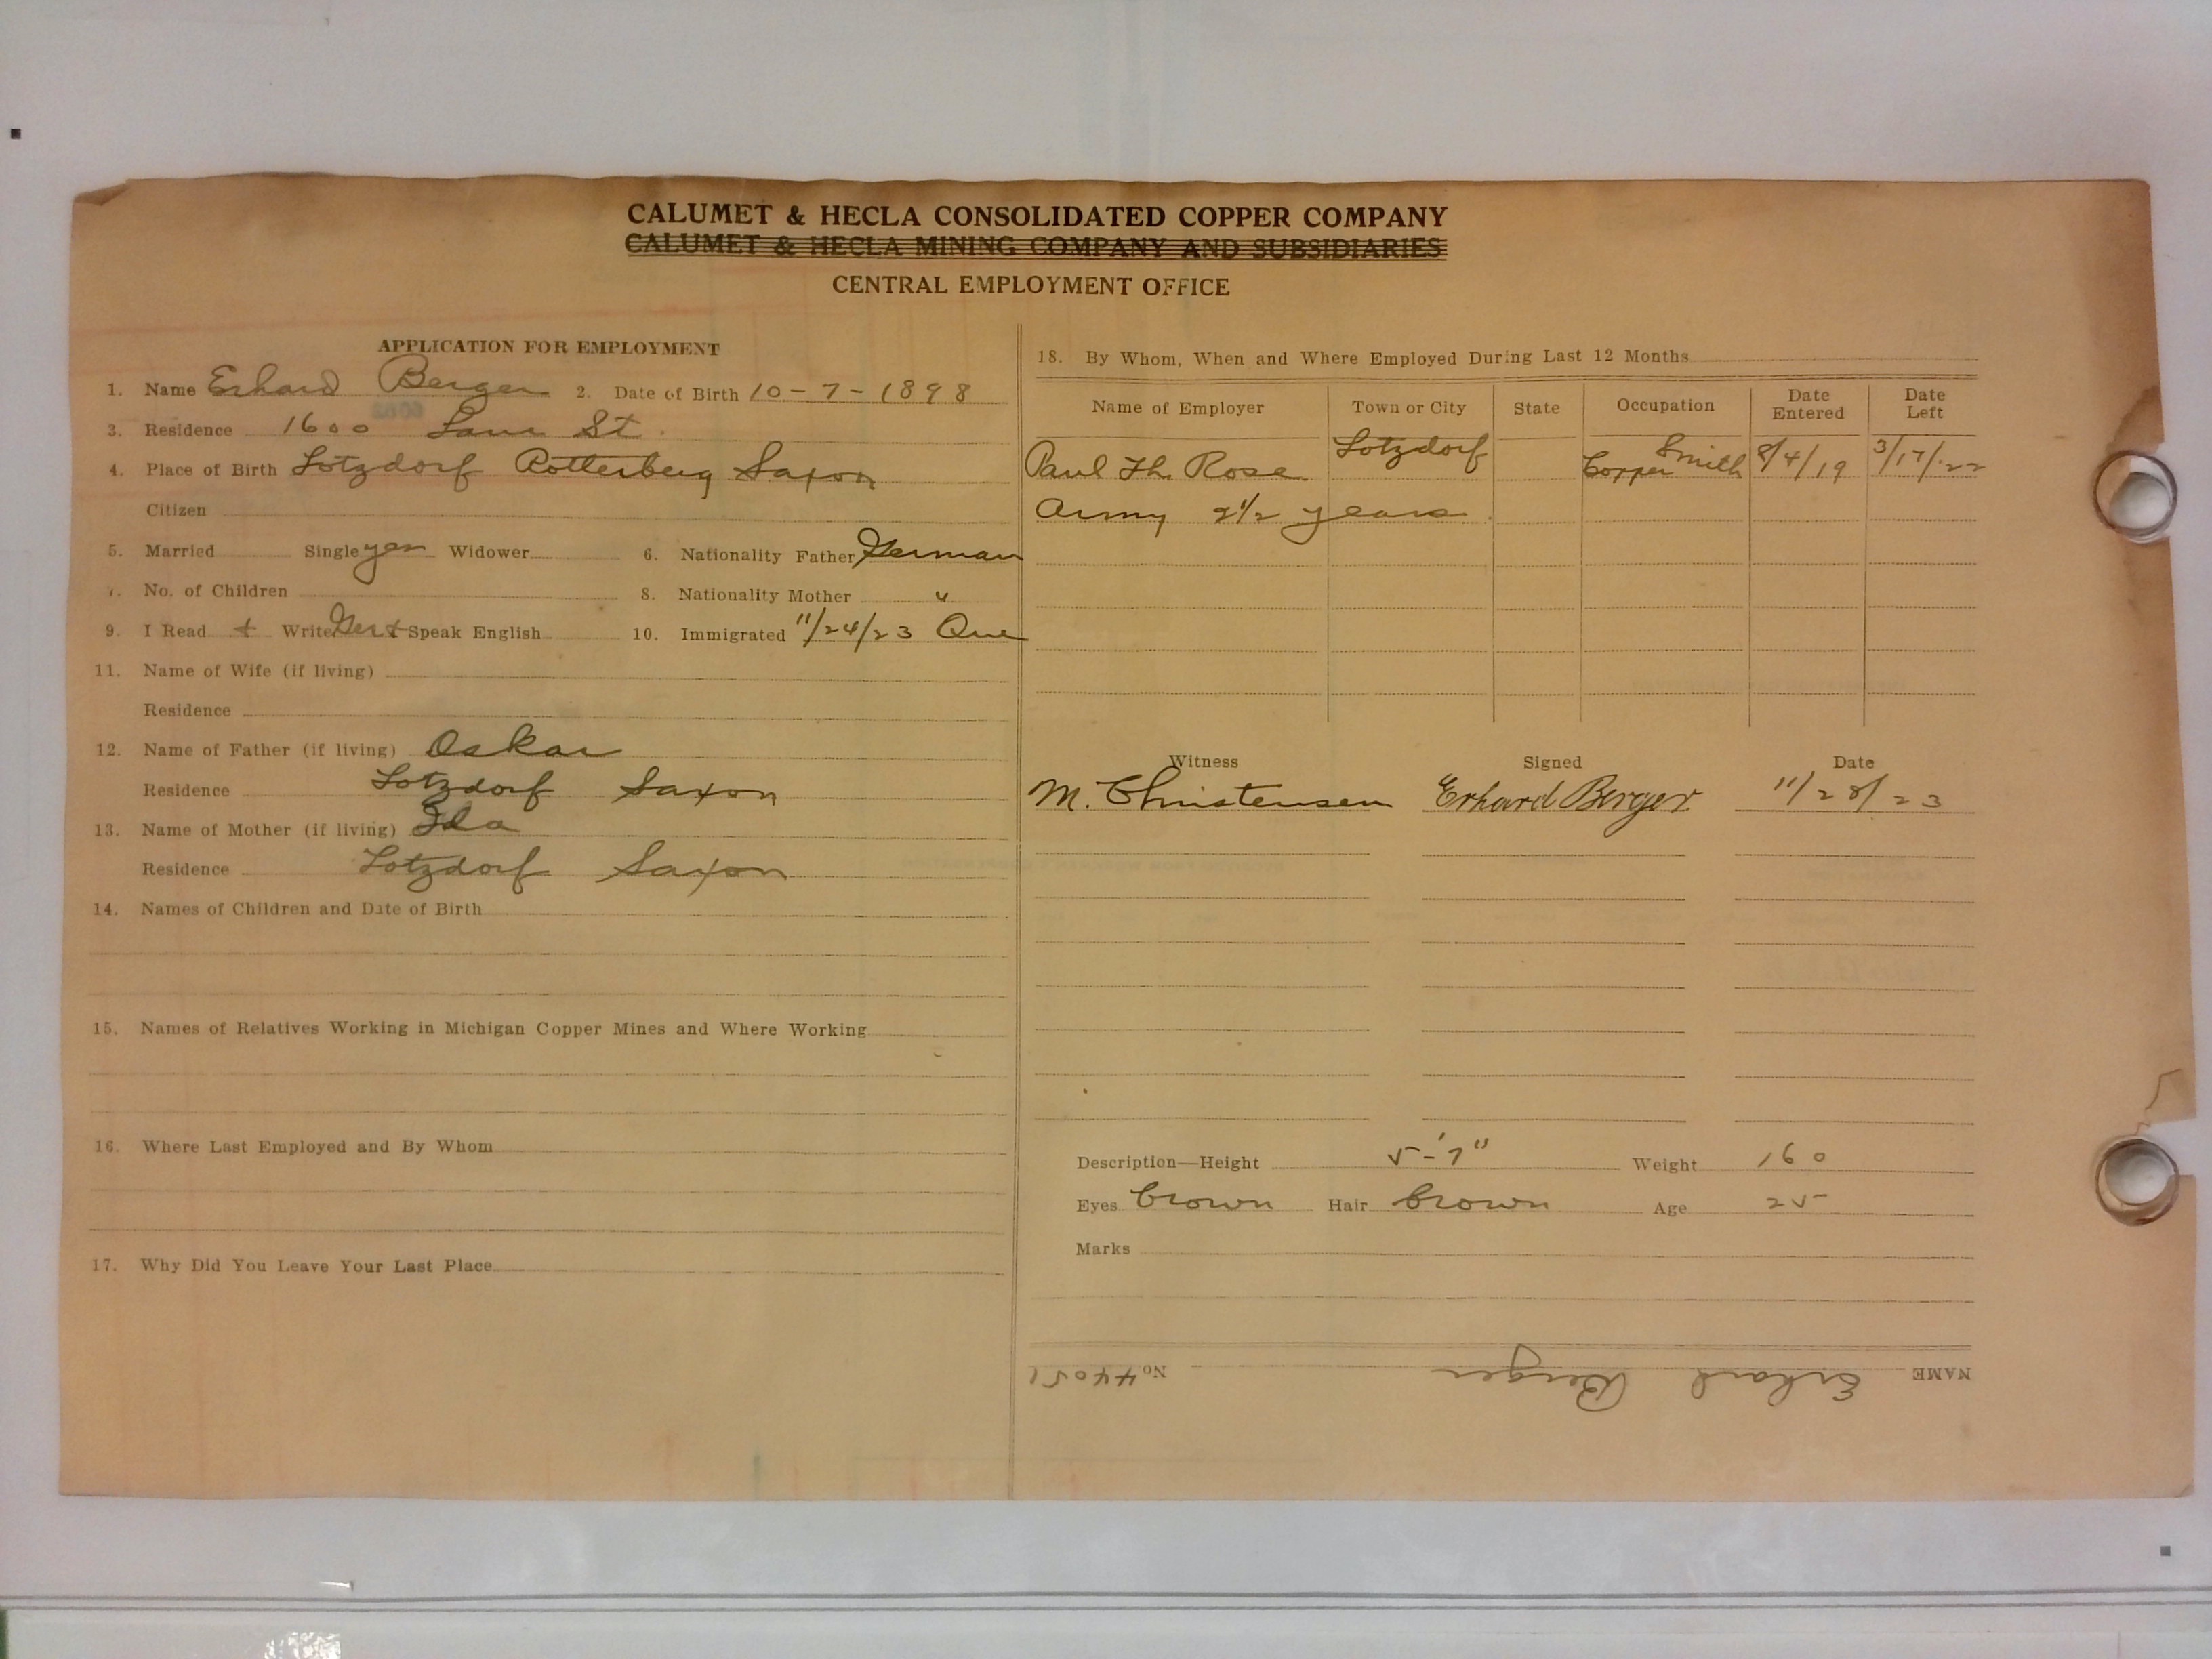 CALUMET & HECLA CONSOLIDATED COPPER COMPANY
CALUMET & HECLA MINING COMPANY AND SUBSIDIARIES
CENTRAL EMPLOYMENT OFFICE
APPLICATION FOR EMPLOYMENT
1. Name Erhard Berger 2. Date of Birth 10-7-1898
3. Residence 1600 St.
4. Place of Birth Lotzdorf Rotterberg Saxon
Citizen
5. Married Single yes Widower 6. Nationality Father German
7. No. of Children 8. Nationality Mother "
9. I Read + Write Ger + Speak English 10. Immigrated 11/24/23 Que
11. Name of Wife (if living)
Residence
12. Name of Father (if living) Oskar
Residence Lotzdorf Saxon
13. Name of Mother (if living) Ida
Residence Lotzdorf Saxon
14. Names of Children and Date of Birth
15. Names of Relatives Working in Michigan Copper Mines and Where Working
16. Where Last Employed and By Whom
17. Why Did You Leave Your Last Place
18. By Whom, When and Where Employed During Last 12 Months
Name of Employer Town or City State Occupation Date Entered Date Left
Paul Th. Rose Lotzdorf Copper Smith 8/4/19 3/17/22
Army 2 1/2 years
Witness Signed Date
M. Christensen Erhard Berger 11/28/23
Description—Height 5-'7" Weight 160
Eyes brown Hair brown Age 25
Marks
NAME Erhard Berger No. 44051